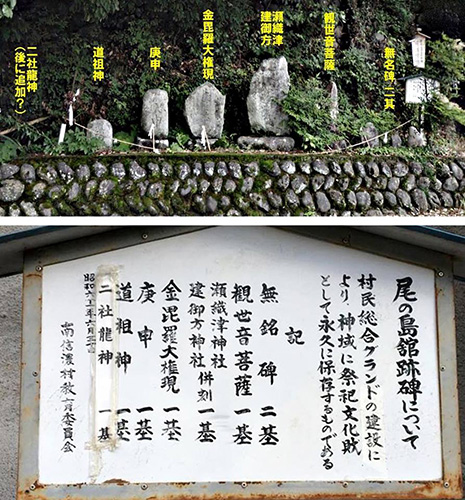 無名碑二基
観世音菩薩
瀬織津
建御方
金毘羅大権現
庚申
道祖神
二社龍神
(後に追加?)
尾の島舘跡碑について
村民総合グランドの建設に
より、神域に祭祀文化財
として永久に保存するものである
記
無銘碑 二基
観世音菩薩 一基
瀬織津神社
建御方神社 併刻 一基
金毘羅大権現 一基
庚申 一基
道祖神 一基
二社龍神 一基
南信濃村教育委員会